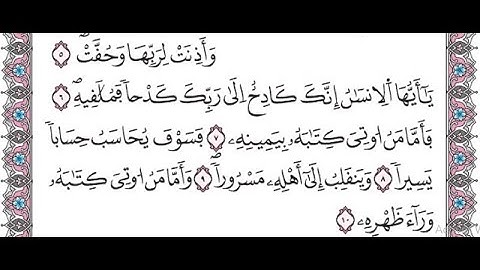 وَأَذِنَتْ لِرَبِّهَا وَحُقَّتْ ۝٥
يَا أَيُّهَا الْإِنْسَانُ إِنَّكَ كَادِحٌ إِلَىٰ رَبِّكَ كَدْحاً فَمُلَاقِيهِ ۝٦
فَأَمَّا مَنْ أُوتِيَ كِتَابَهُ بِيَمِينِهِ ۝٧ فَسَوْفَ يُحَاسَبُ حِسَاباً
يَسِيراً ۝٨ وَيَنْقَلِبُ إِلَىٰ أَهْلِهِ مَسْرُوراً ۝٩ وَأَمَّا مَنْ أُوتِيَ كِتَابَهُ
وَرَاءَ ظَهْرِهِ ۝١٠